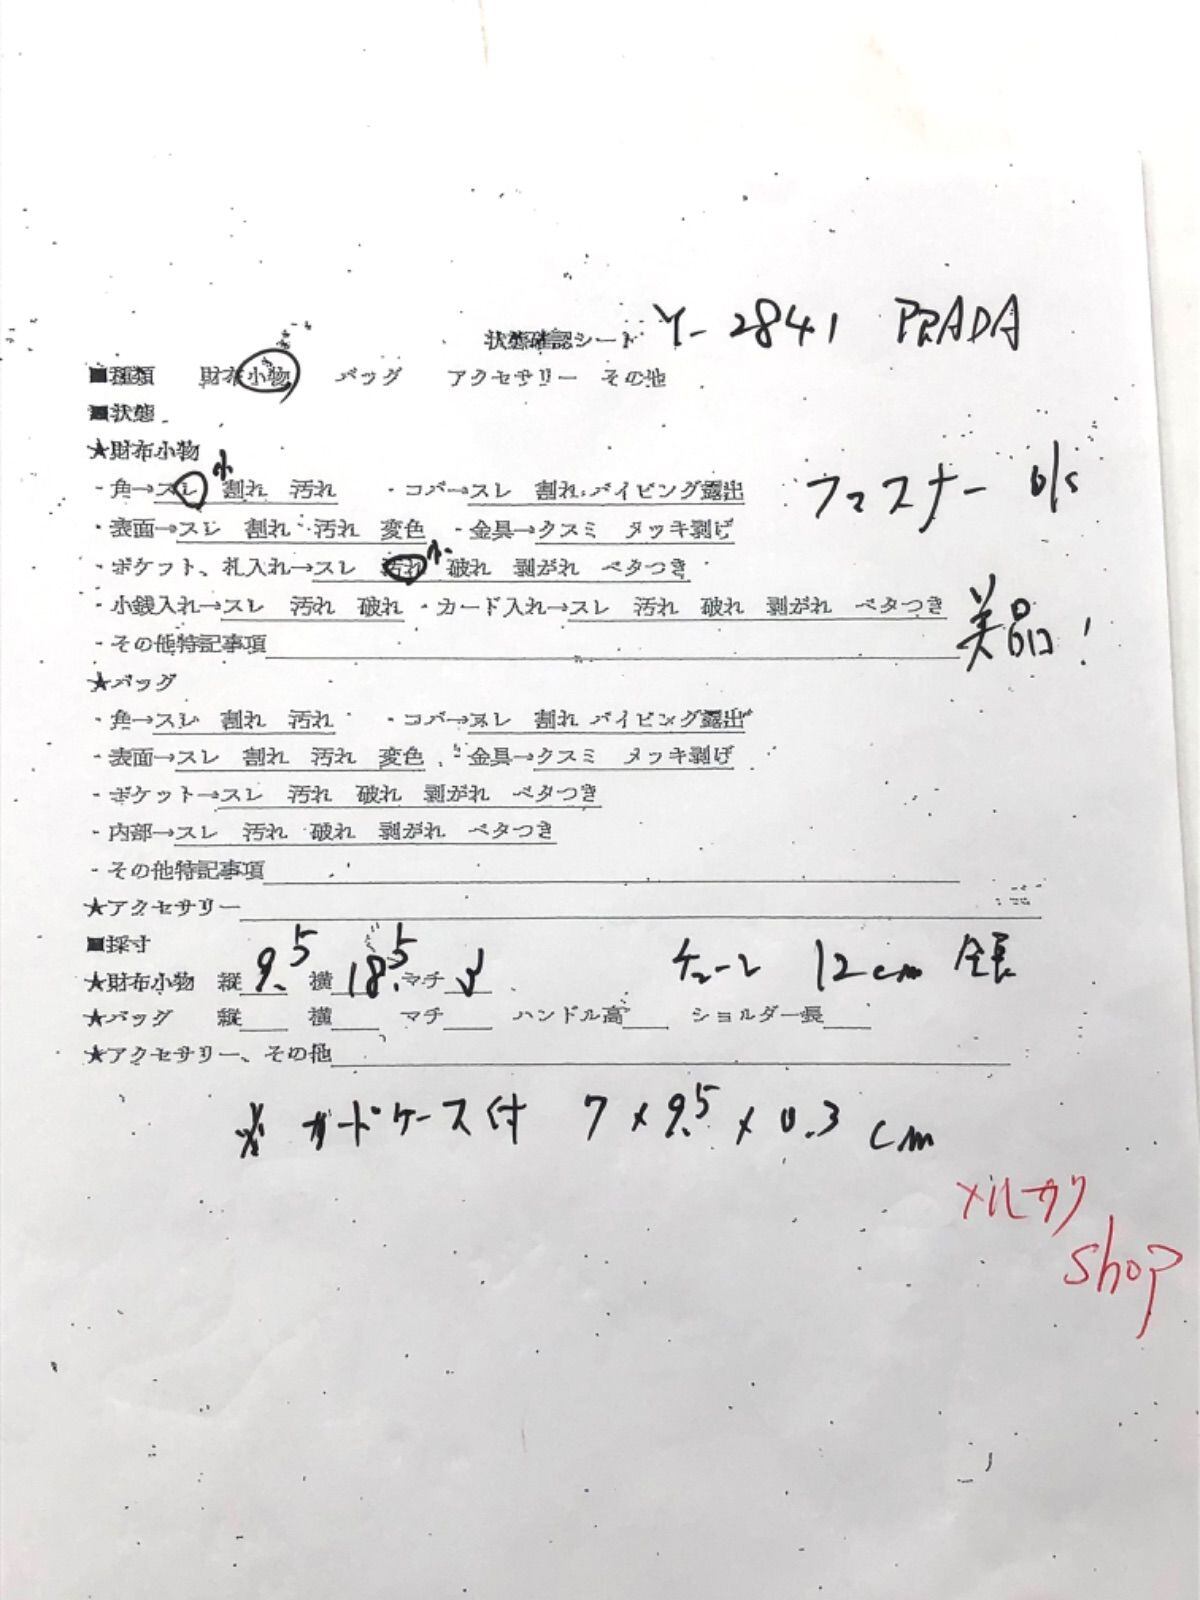 状態確認シート Y-2841 PRADA
■種類 財布小物 バッグ アクセサリー その他
■状態
★財布小物
・角→スレ 小 割れ 汚れ ・コバ→スレ 割れ パイピング露出
ファスナー o/s
・表面→スレ 割れ 汚れ 変色 ・金具→クスミ メッキ剥げ
・ポケット、札入れ→スレ 汚れ 小 破れ 剥がれ ベタつき
・小銭入れ→スレ 汚れ 破れ ・カード入れ→スレ 汚れ 破れ 剥がれ ベタつき
美品!
・その他特記事項
★バッグ
・角→スレ 割れ 汚れ ・コバ→スレ 割れ パイピング露出
・表面→スレ 割れ 汚れ 変色 ・金具→クスミ メッキ剥げ
・ポケット→スレ 汚れ 破れ 剥がれ ベタつき
・内部→スレ 汚れ 破れ 剥がれ ベタつき
・その他特記事項
★アクセサリー
■採寸
★財布小物 縦 9.5 横 18.5 マチ 12cm 全長
★バッグ 縦 横 マチ ハンドル高 ショルダー長
★アクセサリー、その他
※ カードケース付 7×9.5×0.3cm
メルカリ
shop